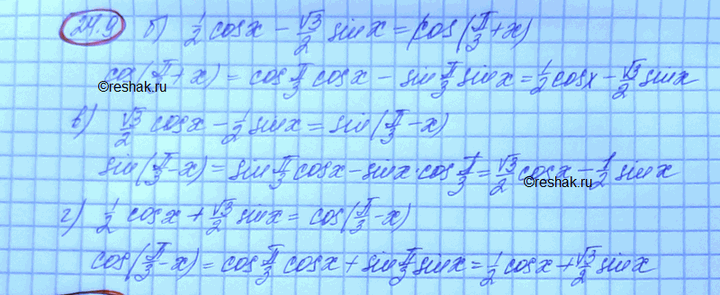 24.9 б) 1/2 cosx - √3/2 sinx = cos(π/3 + x)
cos(π/3 + x) = cos π/3 cosx - sin π/3 sinx = 1/2 cosx - √3/2 sinx
©reshak.ru
в) √3/2 cosx - 1/2 sinx = sin(π/3 - x)
sin(π/3 - x) = sin π/3 cosx - sinx · cos π/3 = √3/2 cosx - 1/2 sinx
©reshak.ru
г) 1/2 cosx + √3/2 sinx = cos(π/3 - x)
cos(π/3 - x) = cos π/3 cosx + sin π/3 sinx = 1/2 cosx + √3/2 sinx